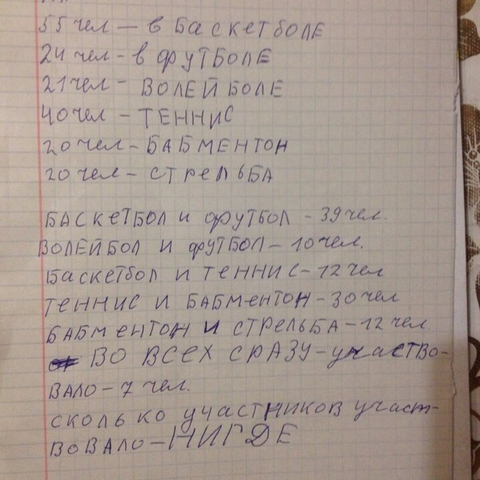 55 чел — в Баскетболе
24 чел - в футболе
21 чел - волейболе
40 чел - теннис
20 чел - бабментон
20 чел - стрельба
Баскетбол и футбол - 39 чел.
Волейбол и футбол - 10 чел.
Баскетбол и теннис - 12 чел
Теннис и бабментон - 30 чел
Бабментон и стрельба - 12 чел
во всех сразу - участво-
вало - 7 чел.
сколько участников участ-
вовало - НИГДЕ